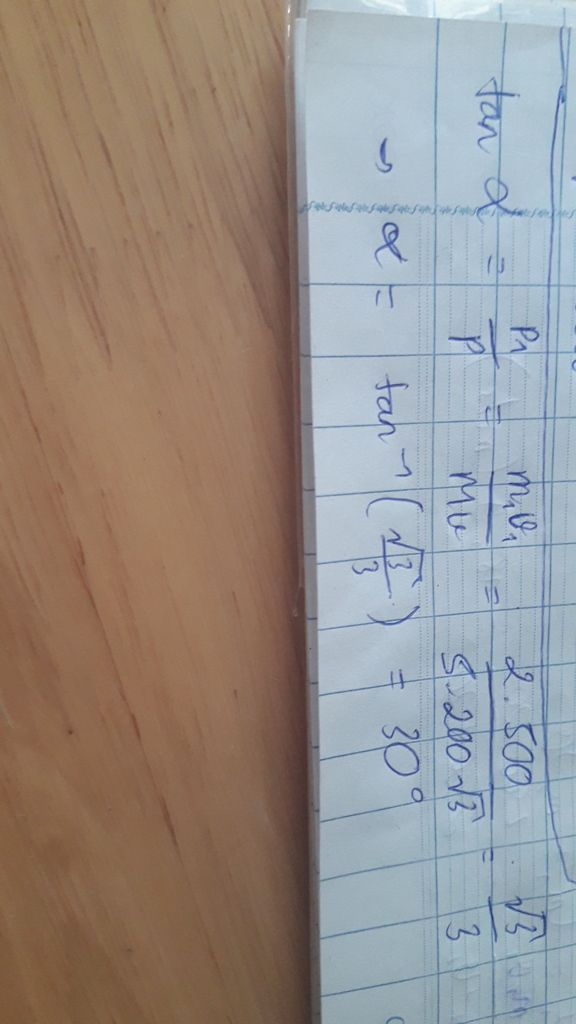 tan α = p₁/p = m₁v₁/mv = 2.500/5.200√3 = √3/3
→ α = tan⁻¹(√3/3) = 30°